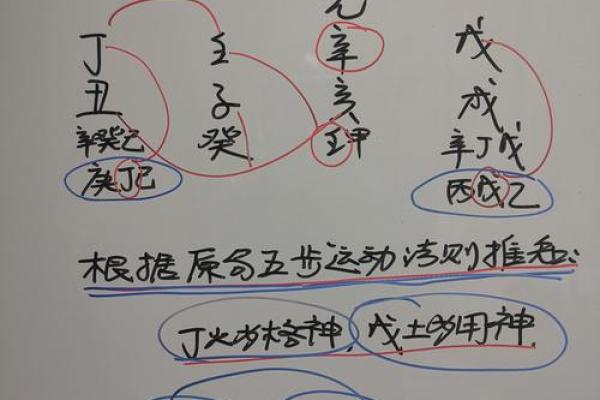 元
丁 壬 辛 戊
丑 子 亥 戌
辛癸己 癸 壬甲 辛丁戊
庚丁己 丙戊乙
根据原局五步运动法则推惫:
丁火为格神, 戊土为用神